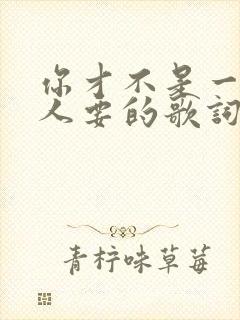 你才不是一
人要的歌詞
青柠味草莓